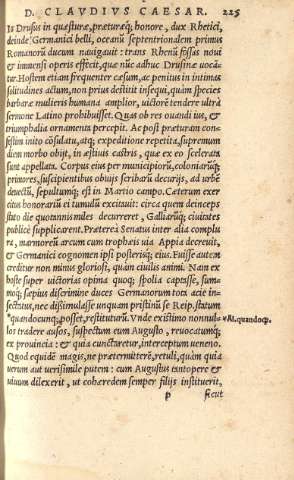 D. CLAVDIVS CAESAR. 225
Is Drusus in quæsturæ, præturæq; honore, dux Rhetici,
deinde Germanici belli, oceanū septentrionalem primus
Romanorū ducum nauigauit: trans Rhenū fossas noui
et immensi operis effecit, quæ nūc adhuc Drusinæ uocā-
tur. Hostem etiam frequenter cæsum, ac penitus in intimas
solitudines actum, non prius destitit insequi, quàm species
barbaræ mulieris humana amplior, uictorē tendere ultrà
sermone Latino prohibuisset. Quas ob res ouandi ius, et
triumphalia ornamenta percepit. Ac post præturam con-
festim inito cōsulatu, atq; expeditione repetita, supremum
diem morbo obijt, in æstiuis castris, quæ ex eo scelerata
sunt appellata. Corpus eius per municipiorū, coloniarūq;
primores, suscipientibus obuijs scribarū decurijs, ad urbē
deuectū, sepultumq; est in Martio campo. Cæterum exer
citus honorariū ei tumulū excitauit: circa quem deinceps
stato die quotannis miles decurreret, Galliarūq; ciuitates
publicè supplicarent. Præterea Senatus inter alia complu
ra, marmoreū arcum cum trophæis uia Appia decreuit,
et Germanici cognomen ipsi posterisq; eius. Fuisse autem
creditur non minus gloriosi, quàm ciuilis animi. Nam ex
hoste super uictorias opima quoq; spolia captasse, sum-
moq; sæpius discrimine duces Germanorum tota acie in-
sectatus, nec dissimulasse unquam pristinū se Reip. statum
"quandocunq; posset, restituturū. Vnde existimo nonnul- "Al. quandoq;
los tradere ausos, suspectum eum Augusto, reuocatumq;
ex prouincia: et quia cunctaretur, interceptum ueneno.
Quod equidē magis, ne prætermitterē, retuli, quàm quia
uerum aut uerisimile putem: cum Augustus tantopere et
uiuum dilexerit, ut cohæredem semper filijs instituerit,
p sicut